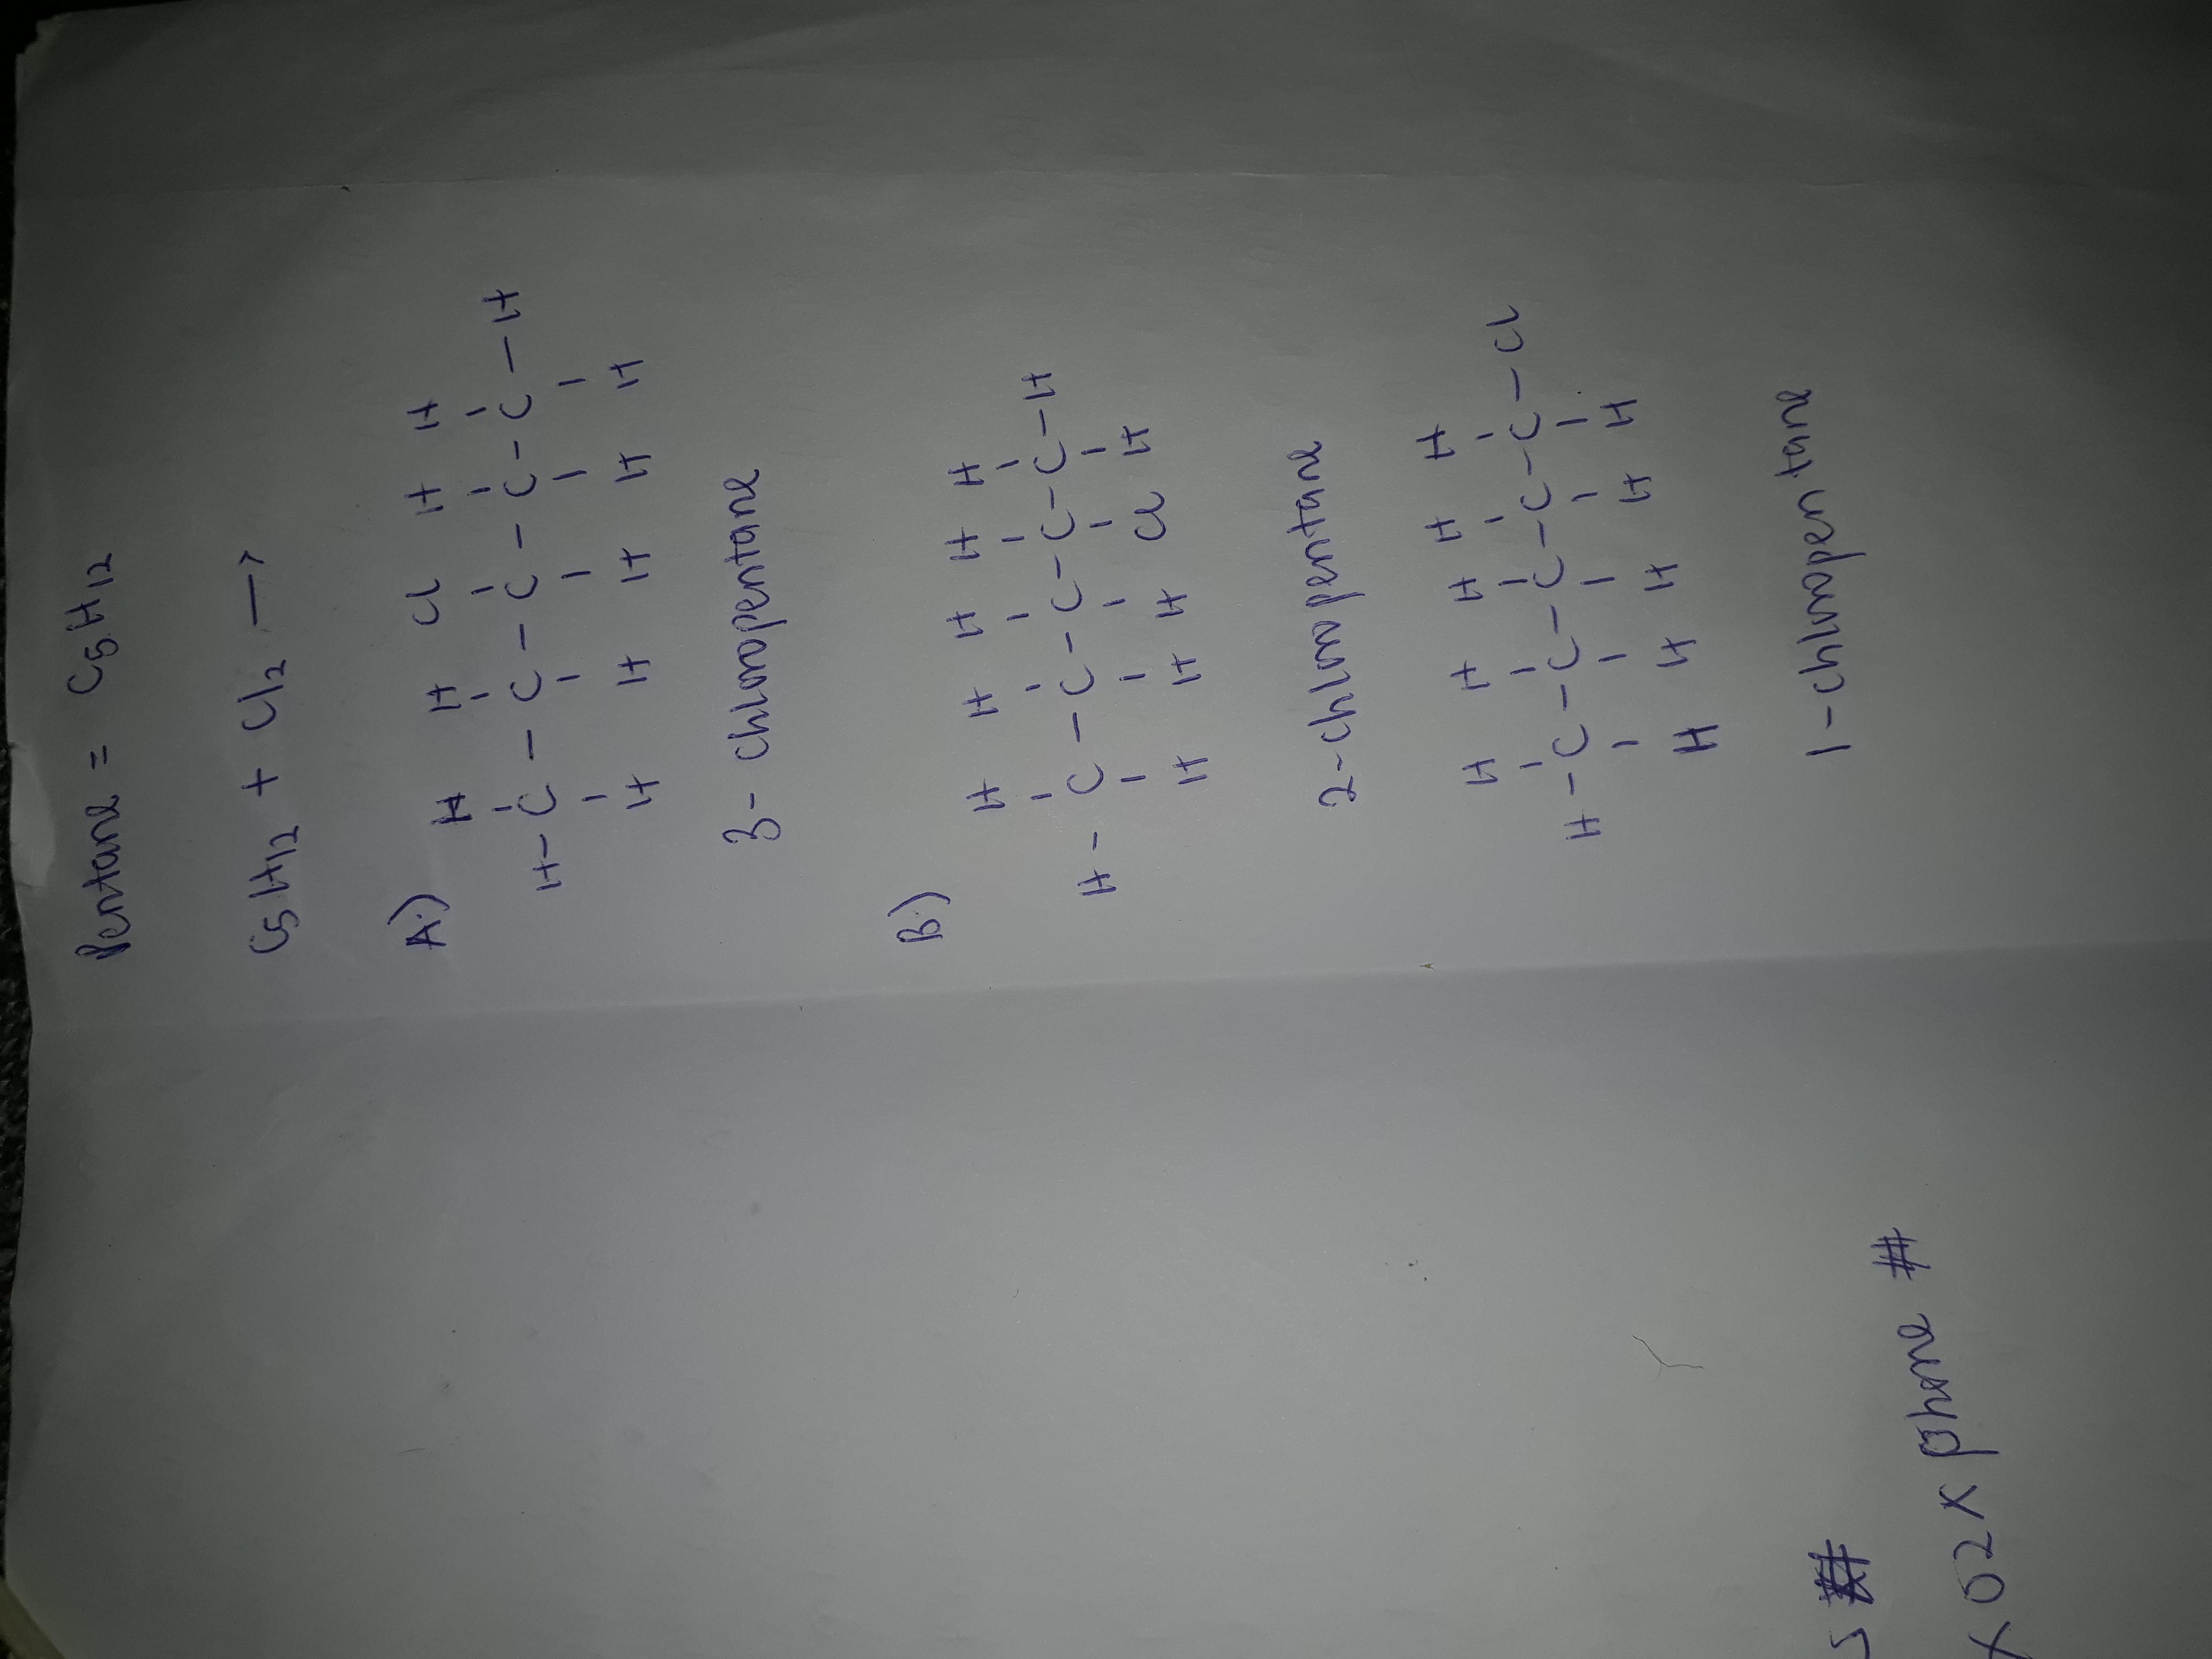 Pentane = C5H12
C5H12 + Cl2 →
A) H H Cl H H
H-C-C-C-C-C-H
H H H H H
3-chloropentane
B) H H H H H
H-C-C-C-C-C-H
H H H Cl H
2-chloropentane
H H H H H
H-C-C-C-C-C-Cl
H H H H H
1-chloropentane
phone #